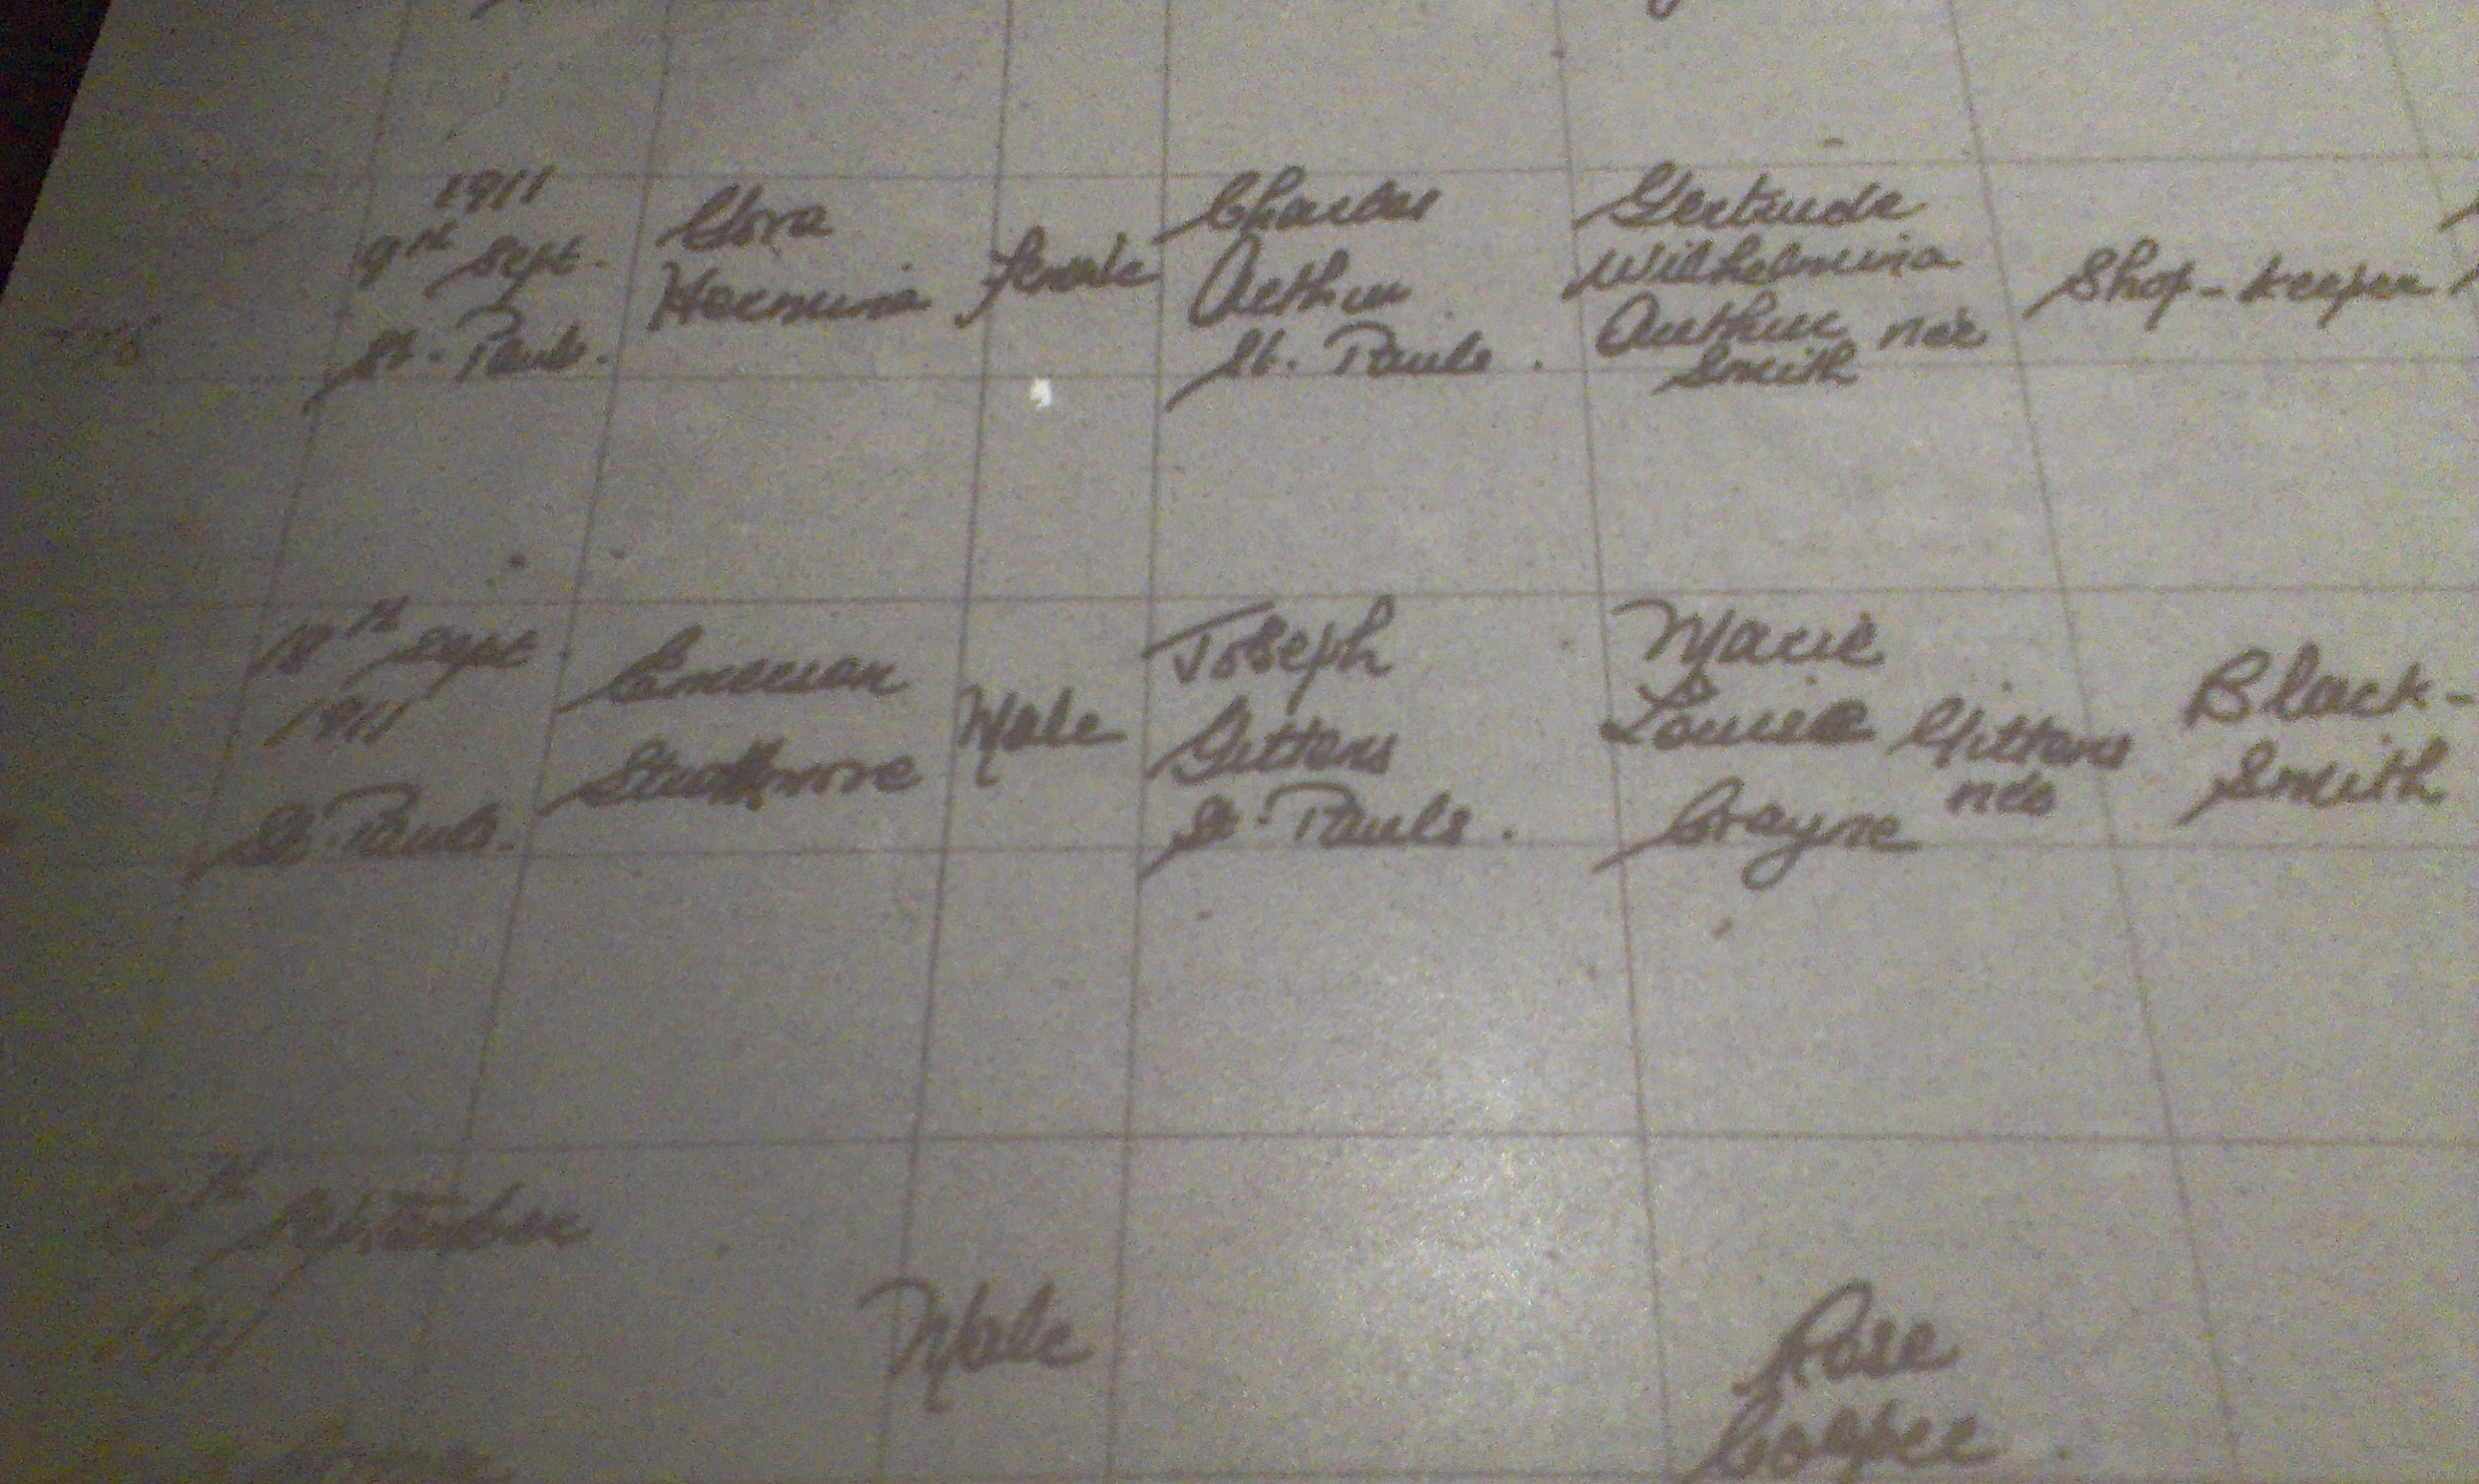 1911
9th Sept.
St. Pauls.
Hermina
female
Charles
Arthur
St. Pauls.
Gertrude
Wilhelmina
Arthur neé
Smith
Shop-keeper
18th Sept.
1911
St. Pauls.
Strathmore
Male
Joseph
Gittens
St. Pauls.
Marie
Louise Gittens
neé
Crayne
Black-
Smith
September
1911
Male
Rose
Cooper